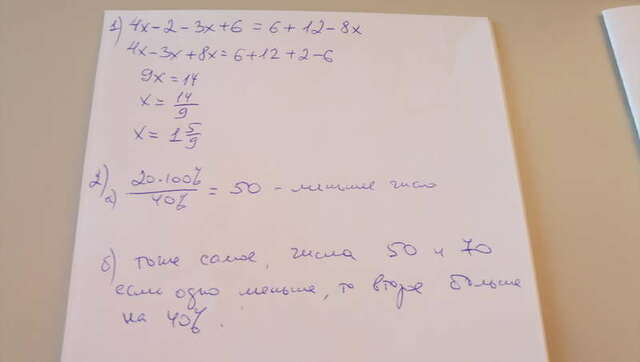 1) 4x-2-3x+6 = 6+12-8x
4x-3x+8x=6+12+2-6
9x=14
x= 14/9
x= 1 5/9
2) а) 20·100%/40% = 50 - меньшее число
б) тоже самое, числа 50 и 70
если одно меньше, то второе больше
на 40%.